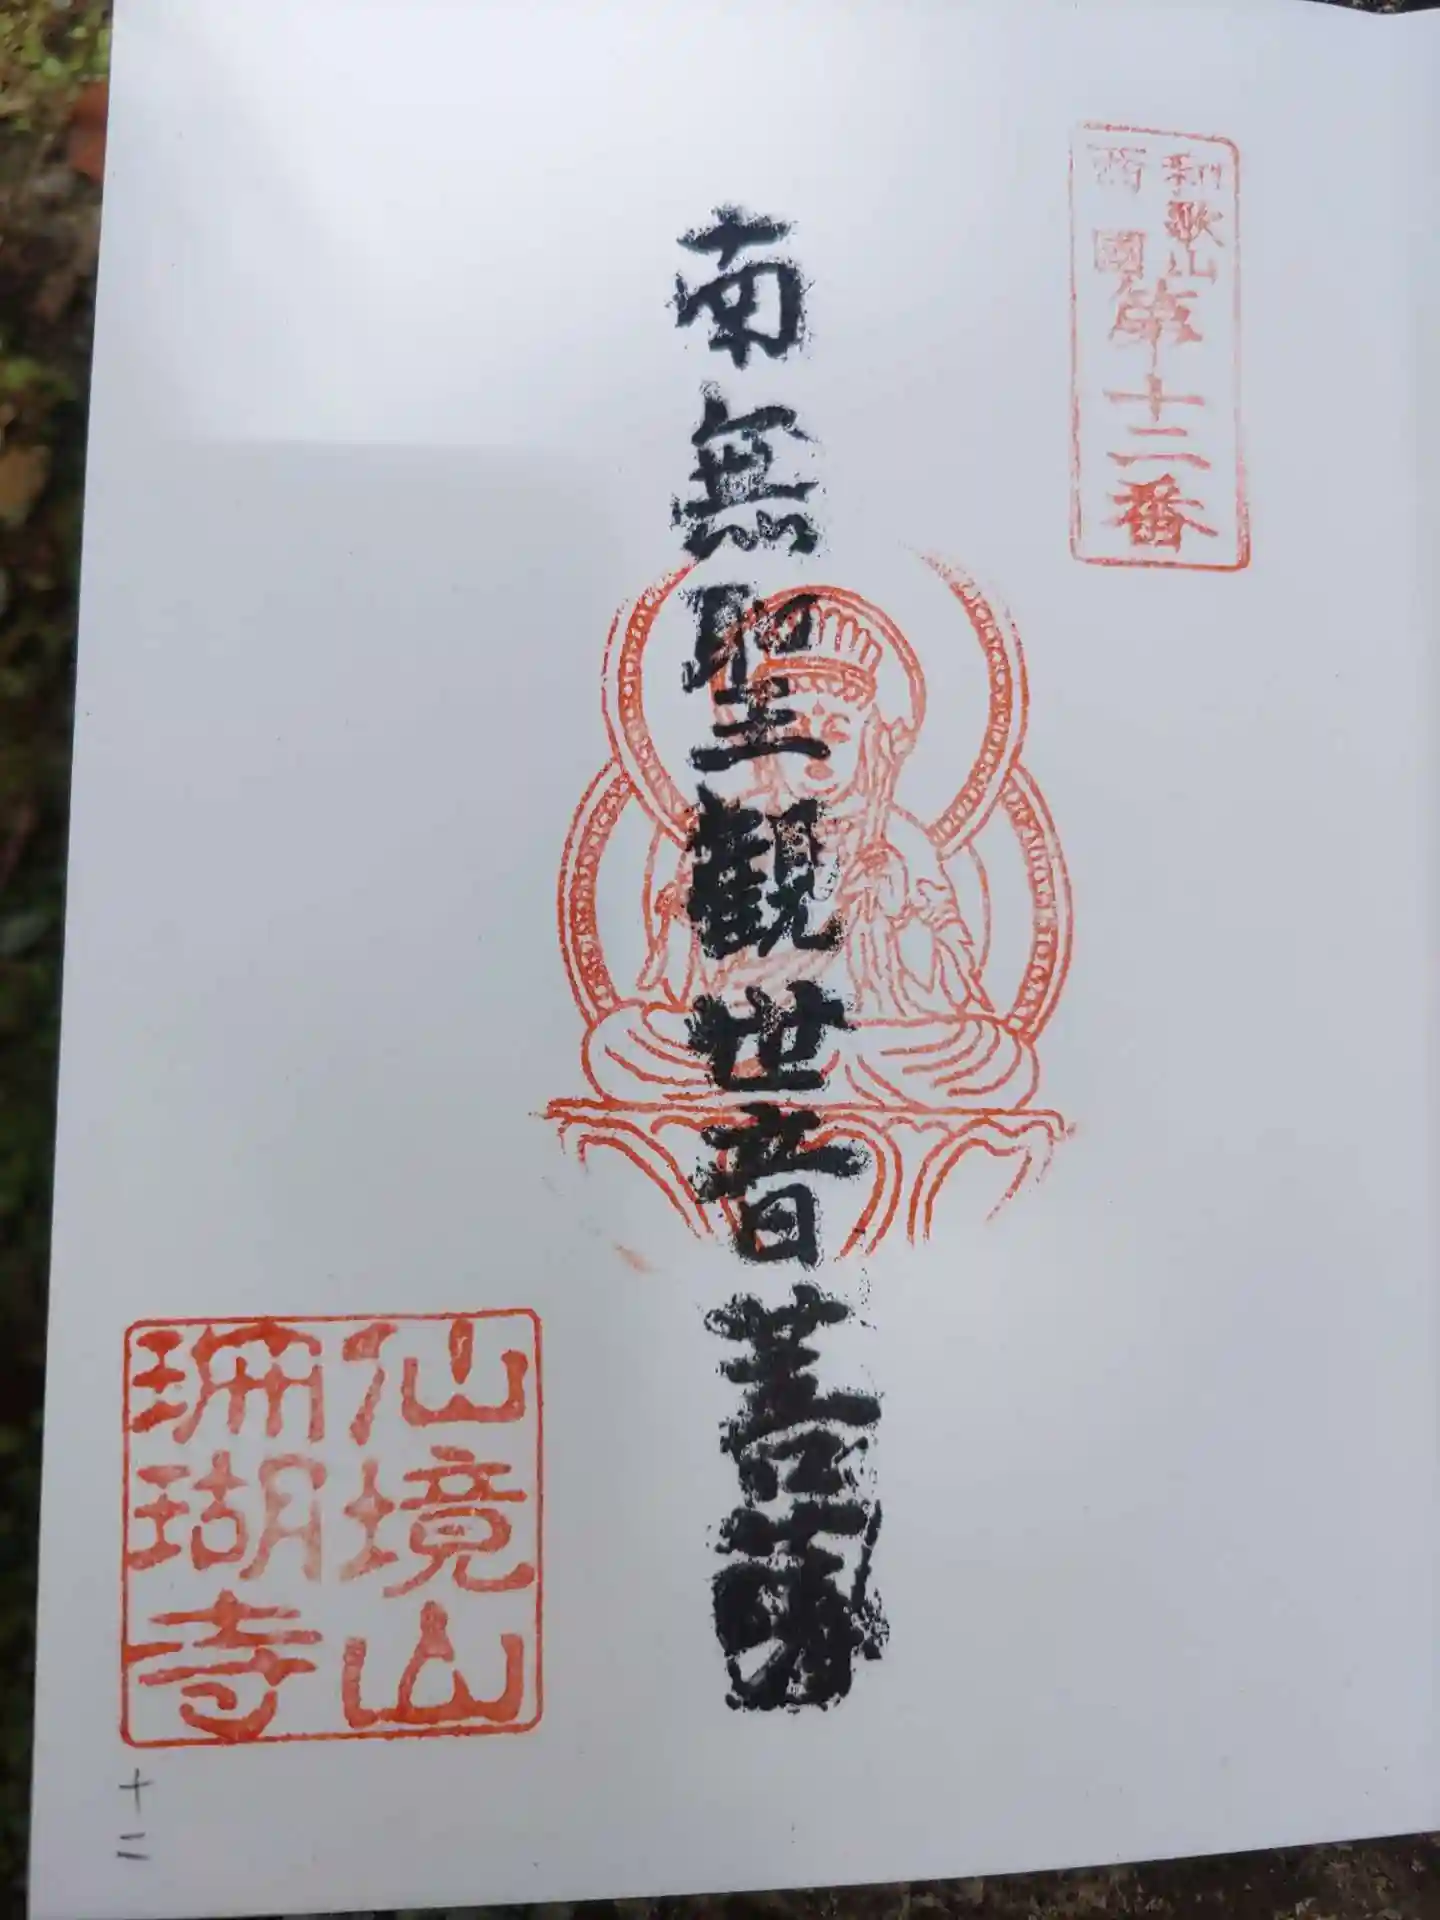 和歌山
西國
第十二番
南無聖観世音菩薩
仙境山
珊瑚寺
十二